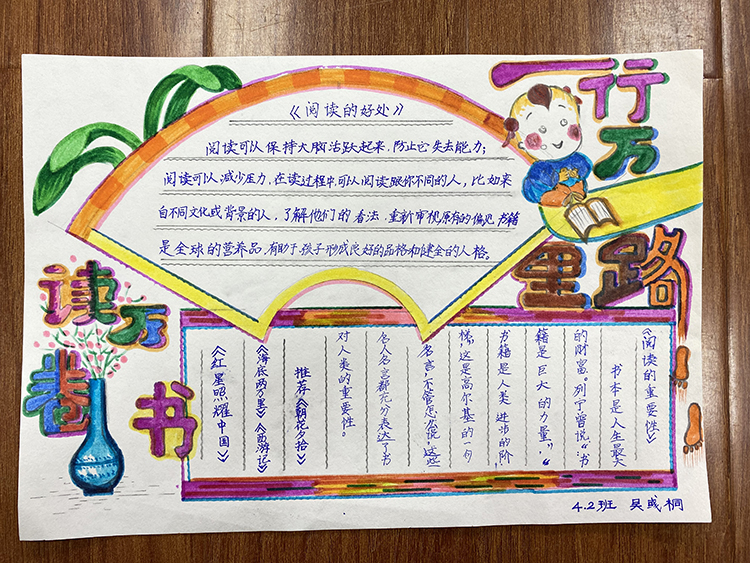 读万
卷书
行万
里路
《阅读的好处》
阅读可以保持大脑活跃起来，防止它失去能力；
阅读可以减少压力，在读过程中，可以阅读跟你不同的人，比如来
自不同文化或背景的人，了解他们的看法，重新审视原有的偏见，书籍
是全球的营养品，有助于孩子形成良好的品格和健全的人格。
《阅读的重要性》
书本是人生最大
的财富。列宁曾说“书
籍是巨大的力量”，“
书籍是人类进步的阶
梯，这是高尔基的一句
名言，不管怎么说，这些
名人名言都充分表达了书
对人类的重要性。
推荐《朝花夕拾》
《海底两万里》《西游记》
《红星照耀中国》
4.2班 吴彧桐